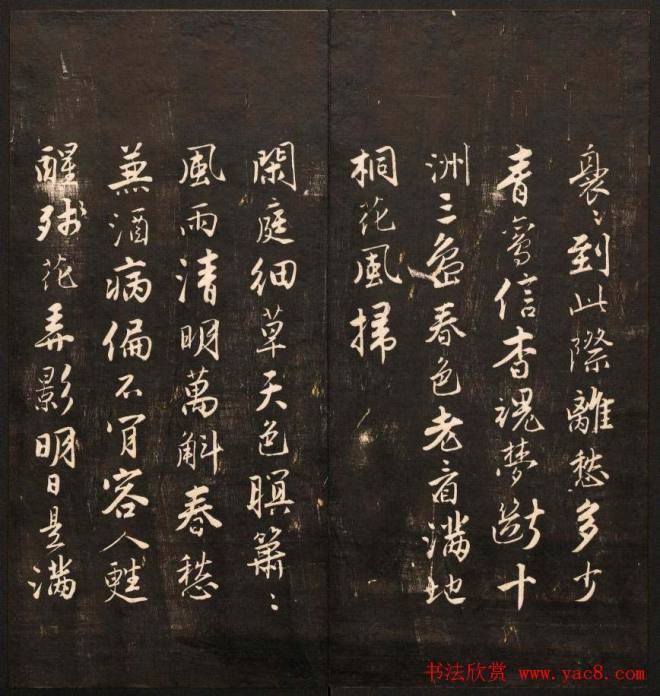 裊〻到此際離愁多少
青鸞信杳魂夢斷十
洲三島春色老看滿地
桐花風掃
閑庭細草天色暝簫〻
風雨清明萬斛春愁
兼酒病偏不肯容人甦
醒殘花弄影明日是滿
书法欣赏 www.yac8.com